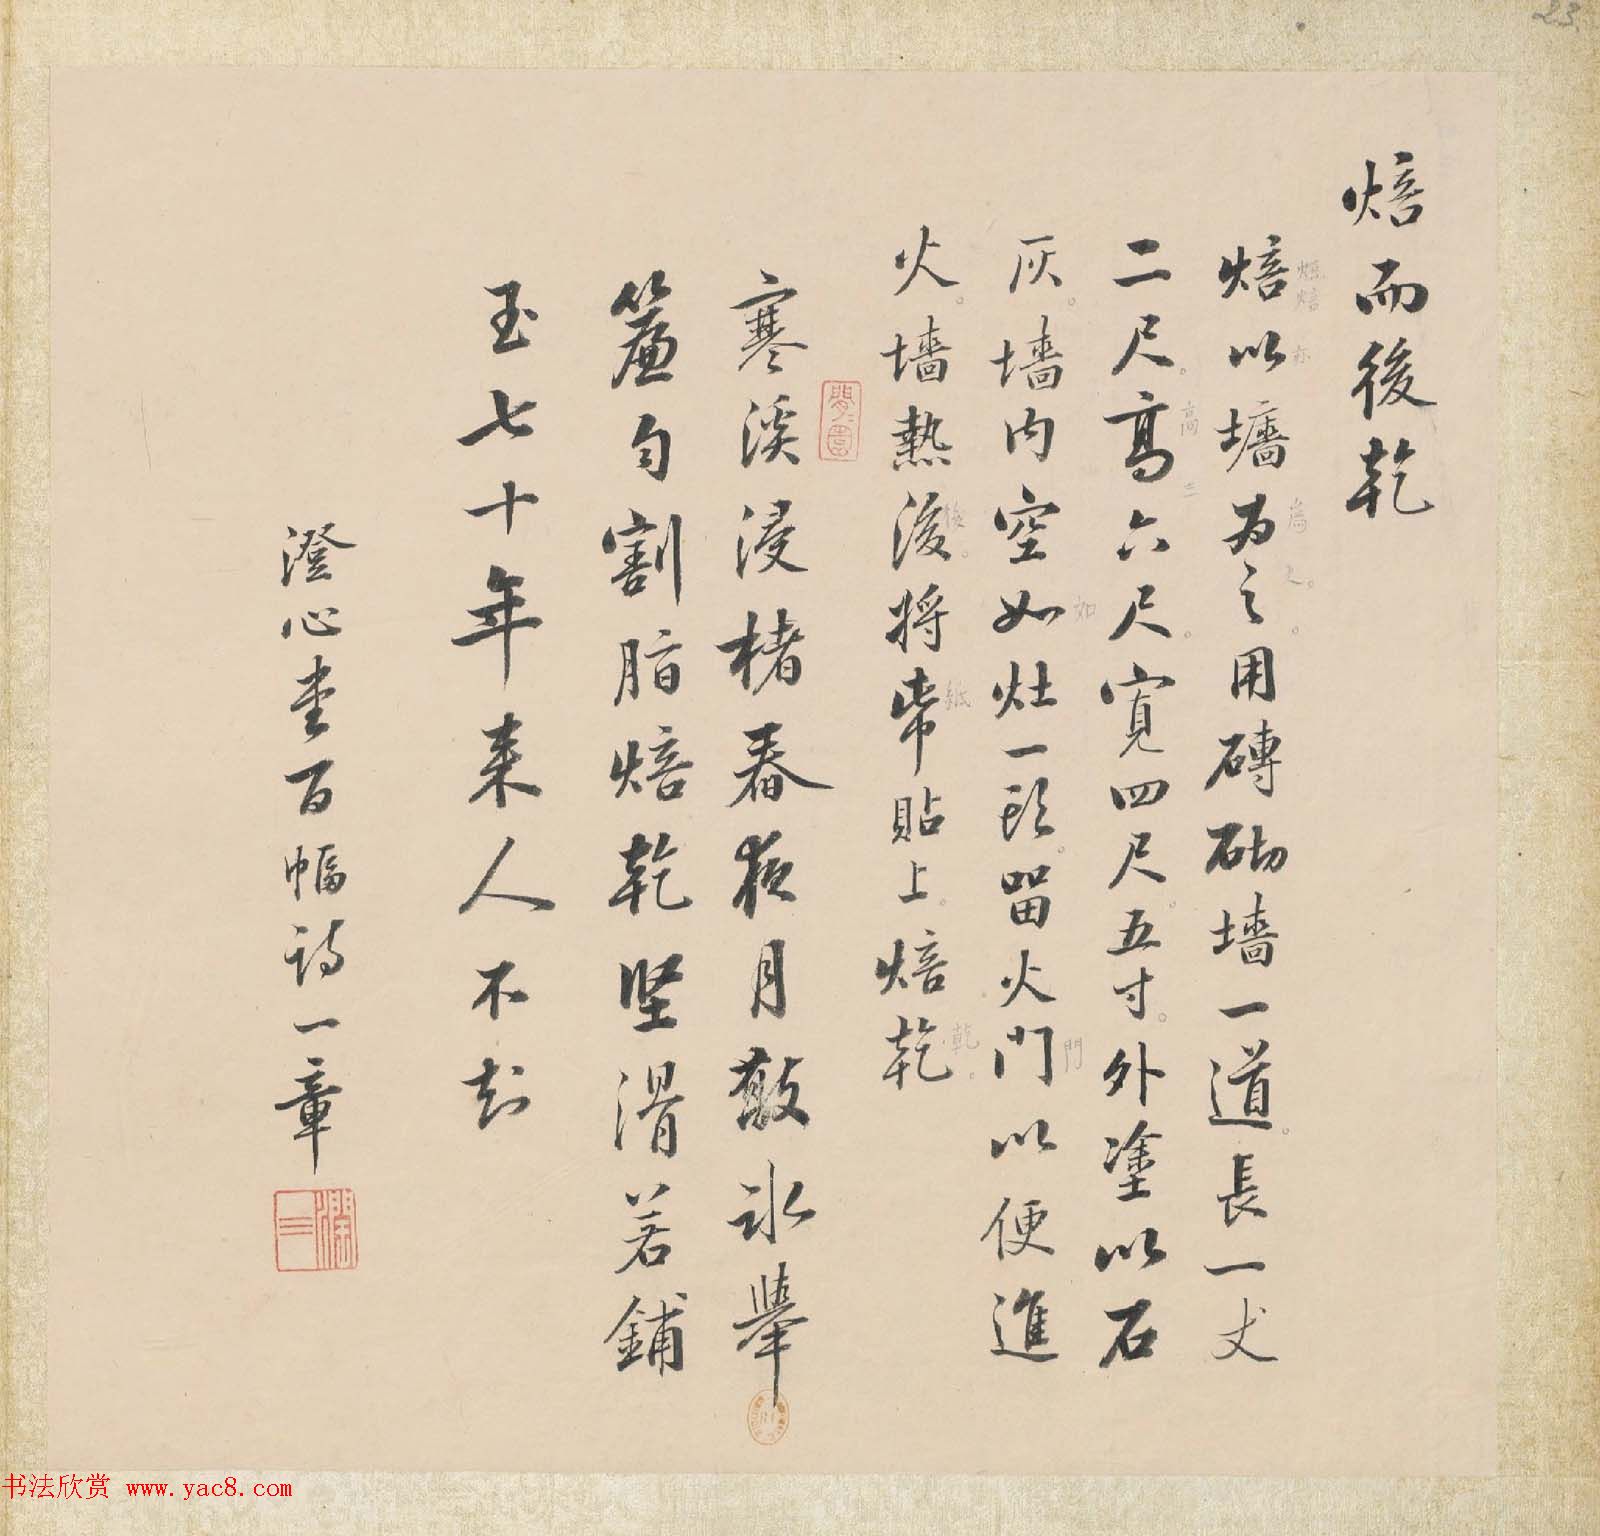 焙而後乾
焙以墻為之用磚砌墻一道長一丈
二尺高六尺寬四尺五寸外塗以石
灰墻内空如灶一頭留火門以便進
火墻熱後將帋貼上焙乾
寒溪浸楮舂夜月敲氷舉
簾匀割脂焙乾坚滑若鋪
玉七十年来人不知
澄心堂百幅詩一章
23
书法欣赏 www.yac8.com